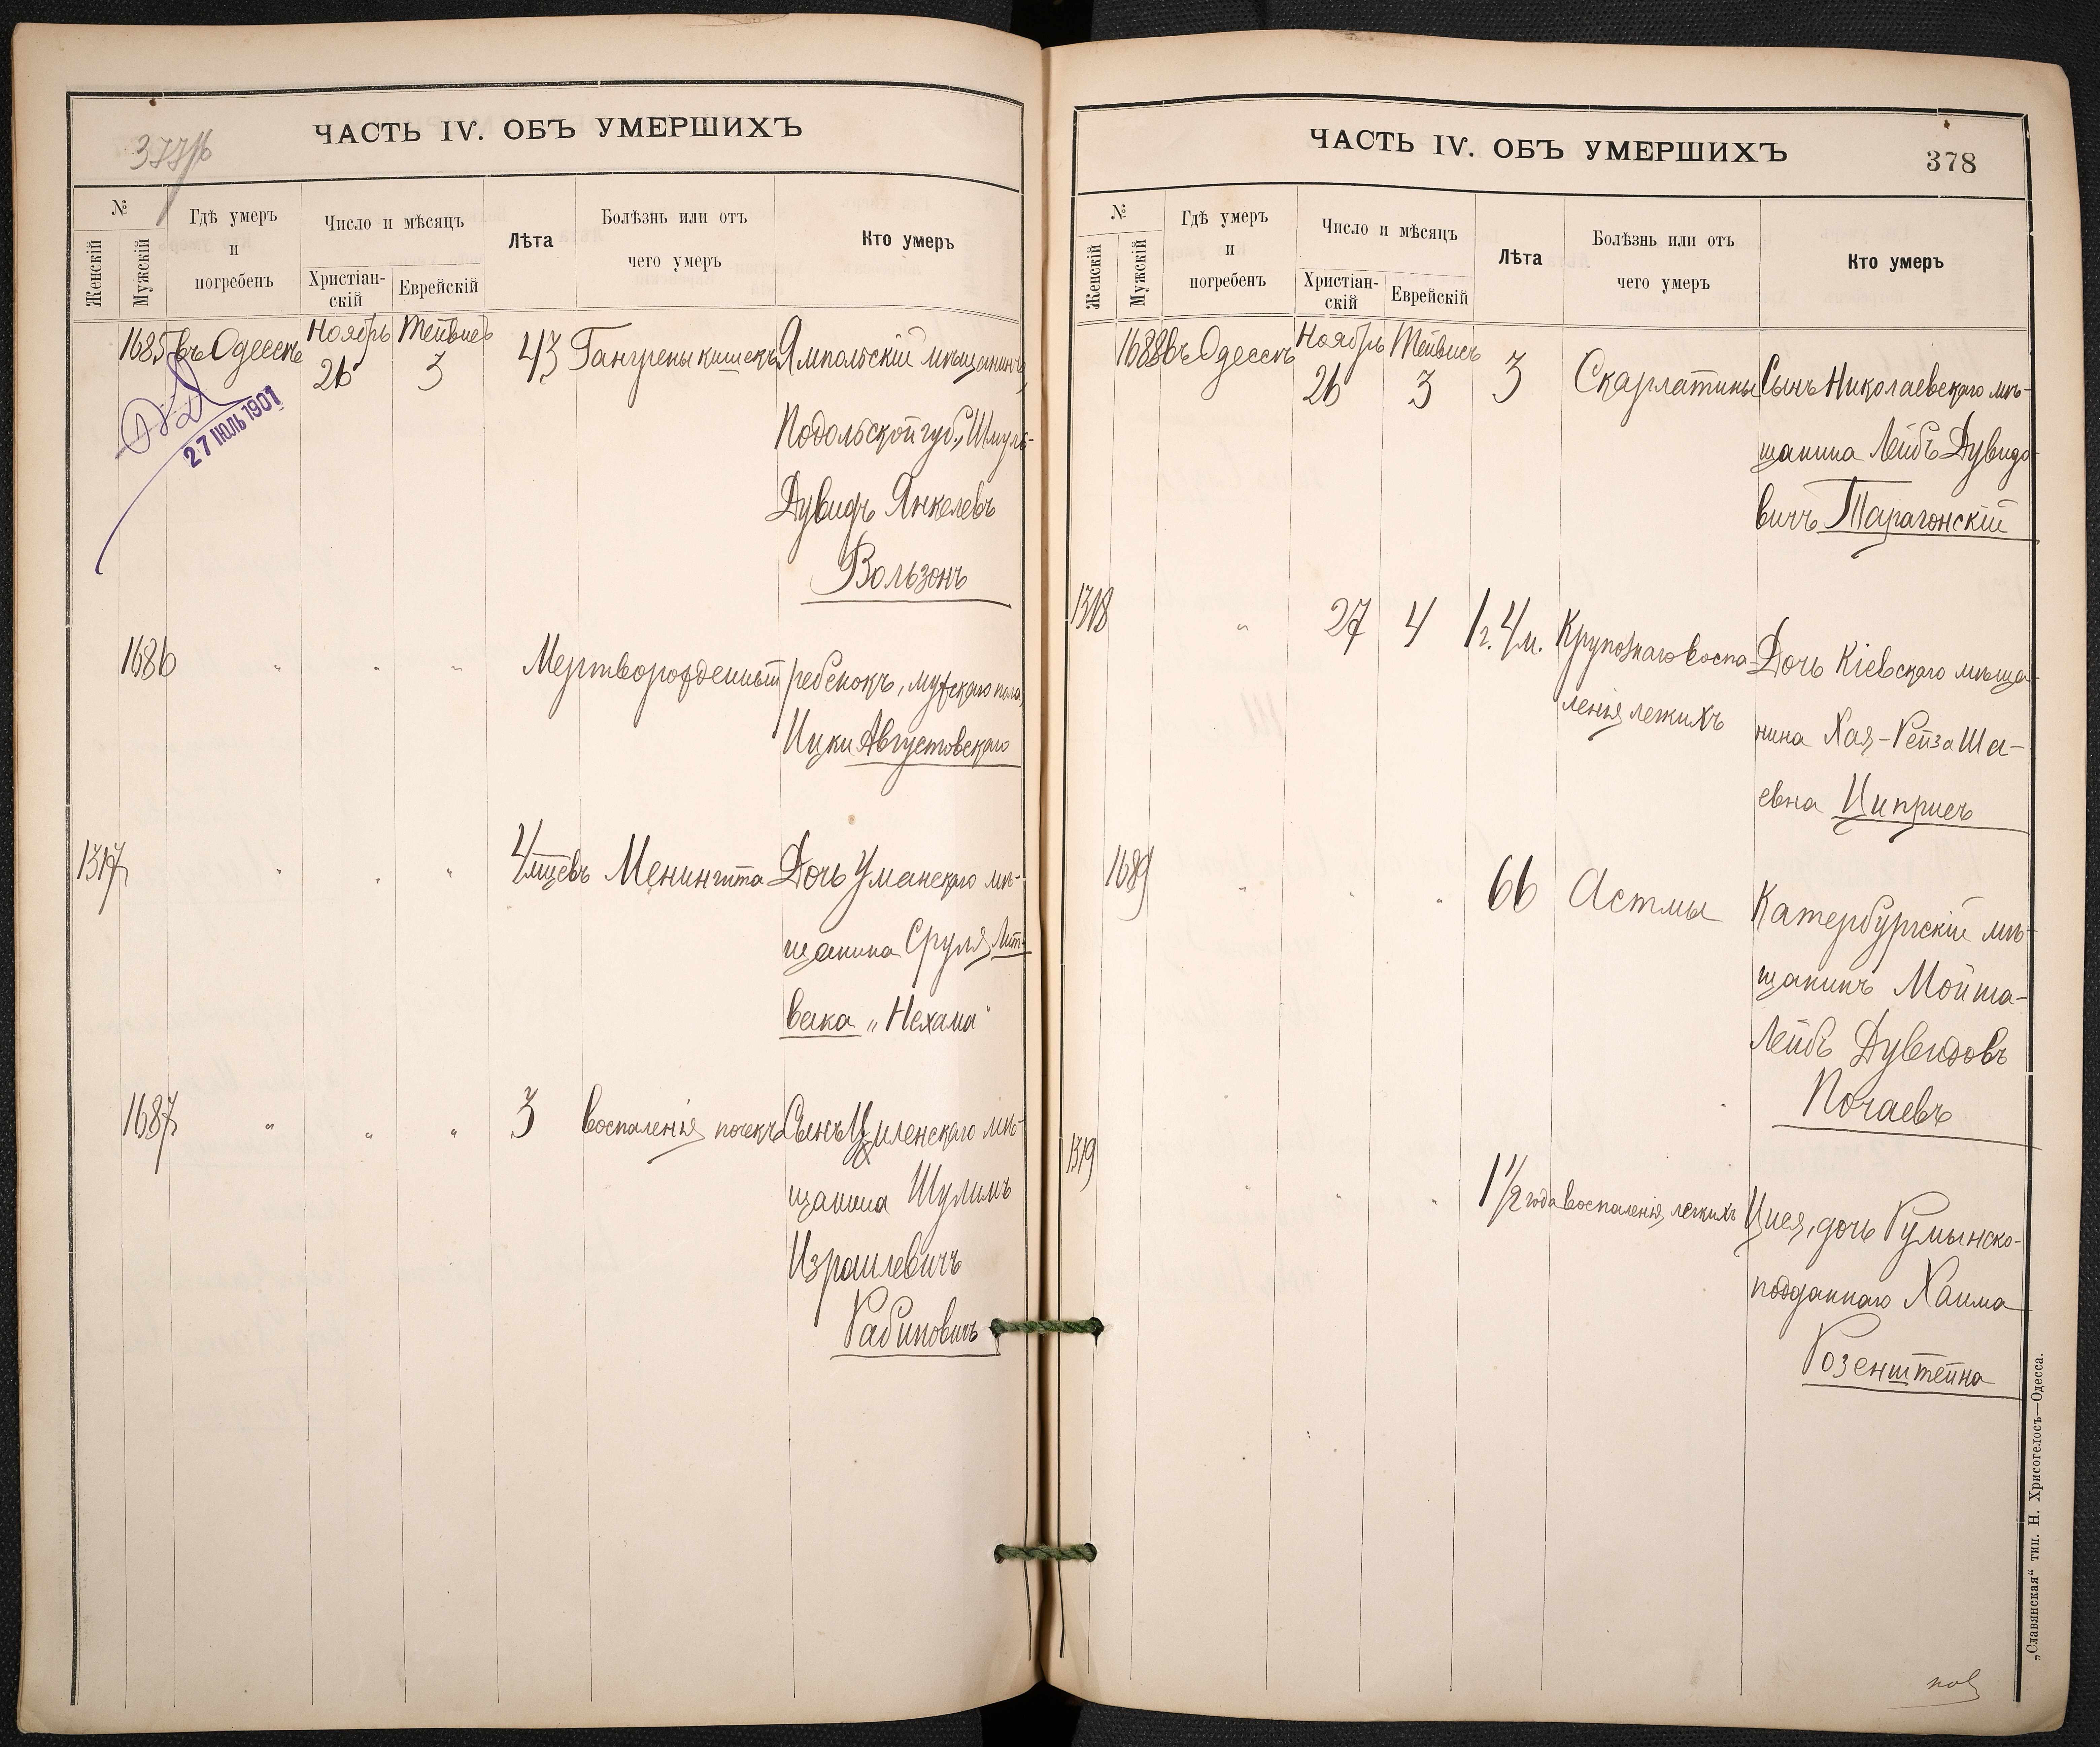 ЧАСТЬ IV. ОБЪ УМЕРШИХЪ
№
Женскій
Мужскій
Гдѣ умеръ
и
погребенъ
Число и мѣсяцъ
Христіан-
скій
Еврейскій
Лѣта
Болѣзнь или отъ
чего умеръ
Кто умеръ
1685 въ Одессѣ Ноябрь 26 Тейвисъ 3 43 Гангрены кишекъ Ямпольскій мѣщанинъ,
Подольской губ., Шмуль-
Дувидъ Янкелевъ
Вользонъ
27 ІЮЛЬ 1901
1686 " " " Мертворожденный ребенокъ, мужскаго пола,
Ицки Августовскаго
1317 " " " 4 мѣсяцевъ Менингита Дочь Уманскаго мѣ-
щанина Сруля Лит-
вака „Нехама"
1687 " " " 3 воспаленія почекъ Сынъ Виленскаго мѣ-
щанина Шулимъ
Израилевичъ
Рабиновичъ
ЧАСТЬ IV. ОБЪ УМЕРШИХЪ
378
№
Женскій
Мужскій
Гдѣ умеръ
и
погребенъ
Число и мѣсяцъ
Христіан-
скій
Еврейскій
Лѣта
Болѣзнь или отъ
чего умеръ
Кто умеръ
1688 въ Одессѣ Ноябрь 26 Тейвисъ 3 3 Скарлатины Сынъ Николаевскаго мѣ-
щанина Лейбъ Дувидо-
вичъ Тарагонскій
1318 " 27 4 1 г. 4 м. Крупознаго воспа- Дочь Кіевскаго мѣща-
ленія легкихъ нина Хая-Рейза Ша-
евна Циприсъ
1689 " " " 66 Астмы Катербургскій мѣ-
щанинъ Мойша-
Лейбъ Дувидовъ
Почаевъ
1319 " " " 1 1/2 года воспаленія легкихъ Цися, дочь Румынско-
подданнаго Хаима
Розенштейна
„Славянская“ тип. Н. Хрисогелосъ—Одесса.